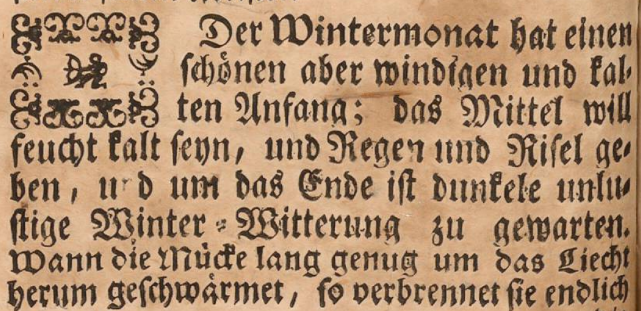 Der Wintermonat hat einen
schönen aber windigen und kal-
ten Anfang; das Mittel will
feucht kalt seyn, und Regen und Risel ge-
ben, und um das Ende ist dunkele unlu-
stige Winter-Witterung zu gewarten.
Wann die Mücke lang genug um das Liecht
herum geschwärmet, so verbrennet sie endlich